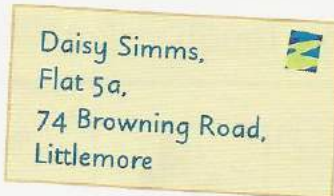 Daisy Simms,
Flat 5a,
74 Browning Road,
Littlemore